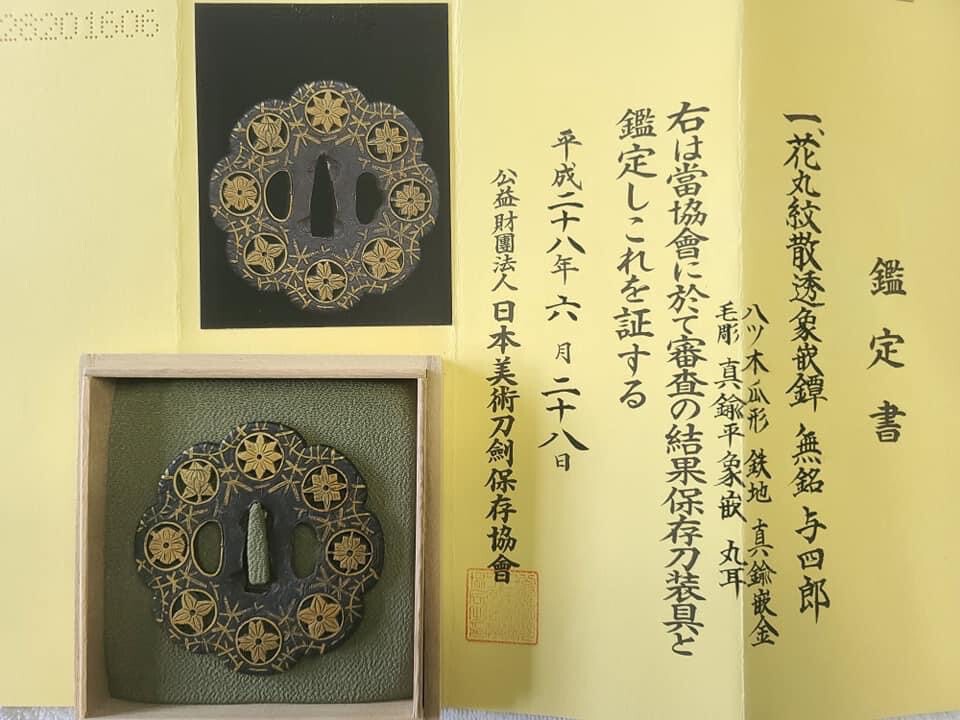 鑑定書
一、花丸紋散透象嵌鐔 無銘 与四郎
八ツ木瓜形 鉄地 真鍮嵌金
毛彫 真鍮平象嵌 丸耳
右は當協會に於て審査の結果保存刀装具と
鑑定しこれを証する
平成二十八年 六月二十八日
公益財團法人 日本美術刀劍保存協會
28201606